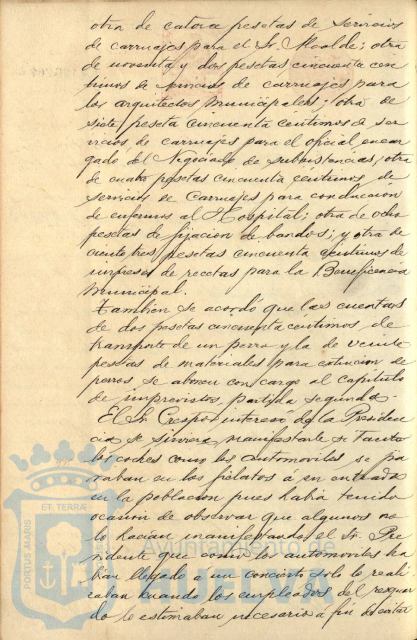 otra de catorce pesetas de servicios
de carruajes para el Sr. Alcalde; otra
de noventa y dos pesetas cincuenta cen
timos de servicios de carruajes para
los arquitectos municipales; otra de
siete peseta cincuenta centimos de ser
vicios de carruajes para el oficial encar
gado del Negociado de subsistencias, otra
de cuatro pesetas cincuenta centimos de
servicios de carruajes para conduccion
de enfermos al Hospital; otra de ocho
pesetas de fijacion de bandos; y otra de
ciento tres pesetas cincuenta centimos de
impresos de recetas para la Beneficencia
municipal.
Tambien se acordó que las cuentas
de dos pesetas cincuenta céntimos de
transporte de un perro y la de veinte
pesetas de materiales para extincion de
perros se abonen con cargo al Capítulo
de imprevistos, partida segunda.
El Sr. Crespo interesó de la Presiden
cia se sirviera manifestarle si tanto
los coches como los automoviles se pa
raban en los fielatos á su entrada
en la poblacion pues habia tenido
ocasion de observar que algunos no
lo hacian manifestando el Sr. Pre
sidente que como los automoviles ha
bian llegado a un concierto solo lo reali
zaban cuando los empleados del resguar
do lo estimaban necesario á fin de evitar
PORTUS MARIS
ET TERRÆ
Ayuntamiento de
HUELVA